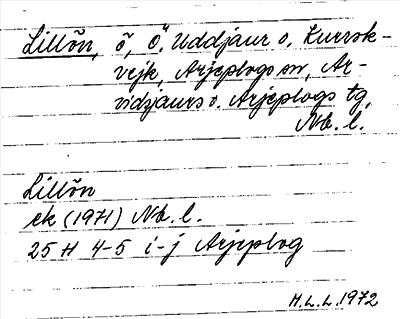 Lillön, ö, Ö. Uddjaur o. Kuorsk-
vejk, Arjeplogs sn, Ar-
vidsjaurs o. Arjeplogs tg,
Nb. l.
Lillön
ek (1971) Nb. l.
25 H 4-5 i-j Arjeplog
H.L.L. 1972